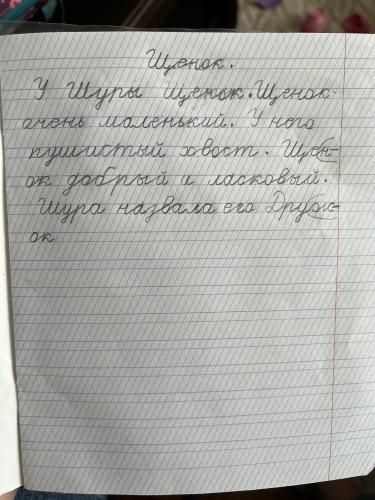 Щенок.
У Шуры щенок. Щенок
очень маленький. У него
пушистый хвост. Щен-
ок добрый и ласковый.
Шура назвала его Друж-
ок